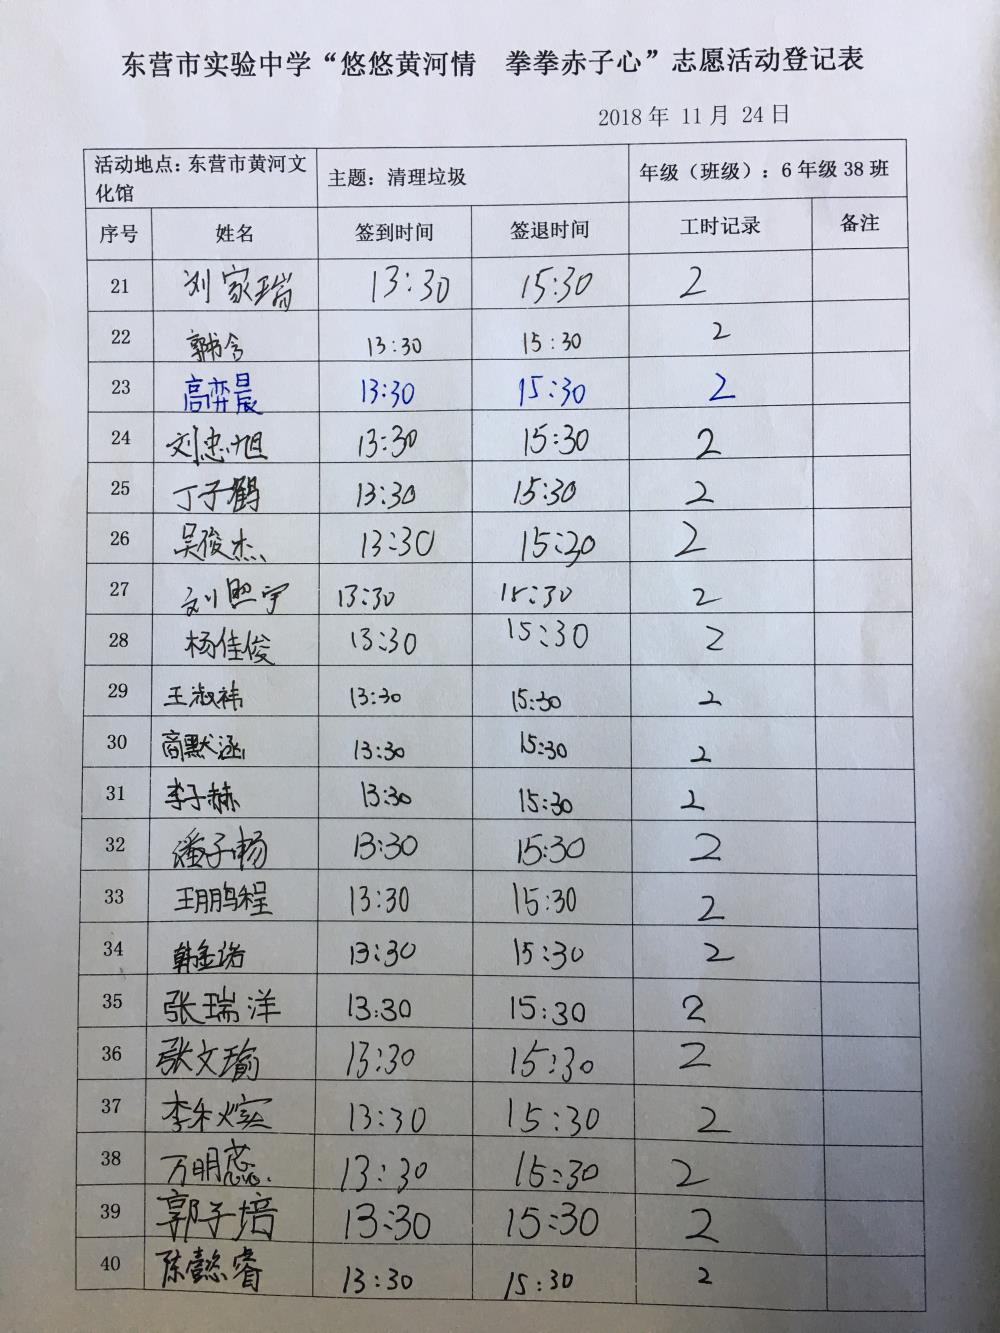 东营市实验中学“悠悠黄河情　拳拳赤子心”志愿活动登记表
2018 年 11 月 24 日
活动地点：东营市黄河文化馆 主题：清理垃圾 年级（班级）：6 年级 38 班
序号 姓名 签到时间 签退时间 工时记录 备注
21 刘家瑞 13:30 15:30 2
22 郭书含 13:30 15:30 2
23 高弈晨 13:30 15:30 2
24 刘忠旭 13:30 15:30 2
25 丁子鹤 13:30 15:30 2
26 吴俊杰 13:30 15:30 2
27 刘照宇 13:30 15:30 2
28 杨佳俊 13:30 15:30 2
29 王淑祎 13:30 15:30 2
30 商默涵 13:30 15:30 2
31 李子赫 13:30 15:30 2
32 潘子畅 13:30 15:30 2
33 王鹏程 13:30 15:30 2
34 韩金诺 13:30 15:30 2
35 张瑞洋 13:30 15:30 2
36 张文瑜 13:30 15:30 2
37 13:30 15:30 2
38 万明蕊 13:30 15:30 2
39 郭子培 13:30 15:30 2
40 陈懿睿 13:30 15:30 2